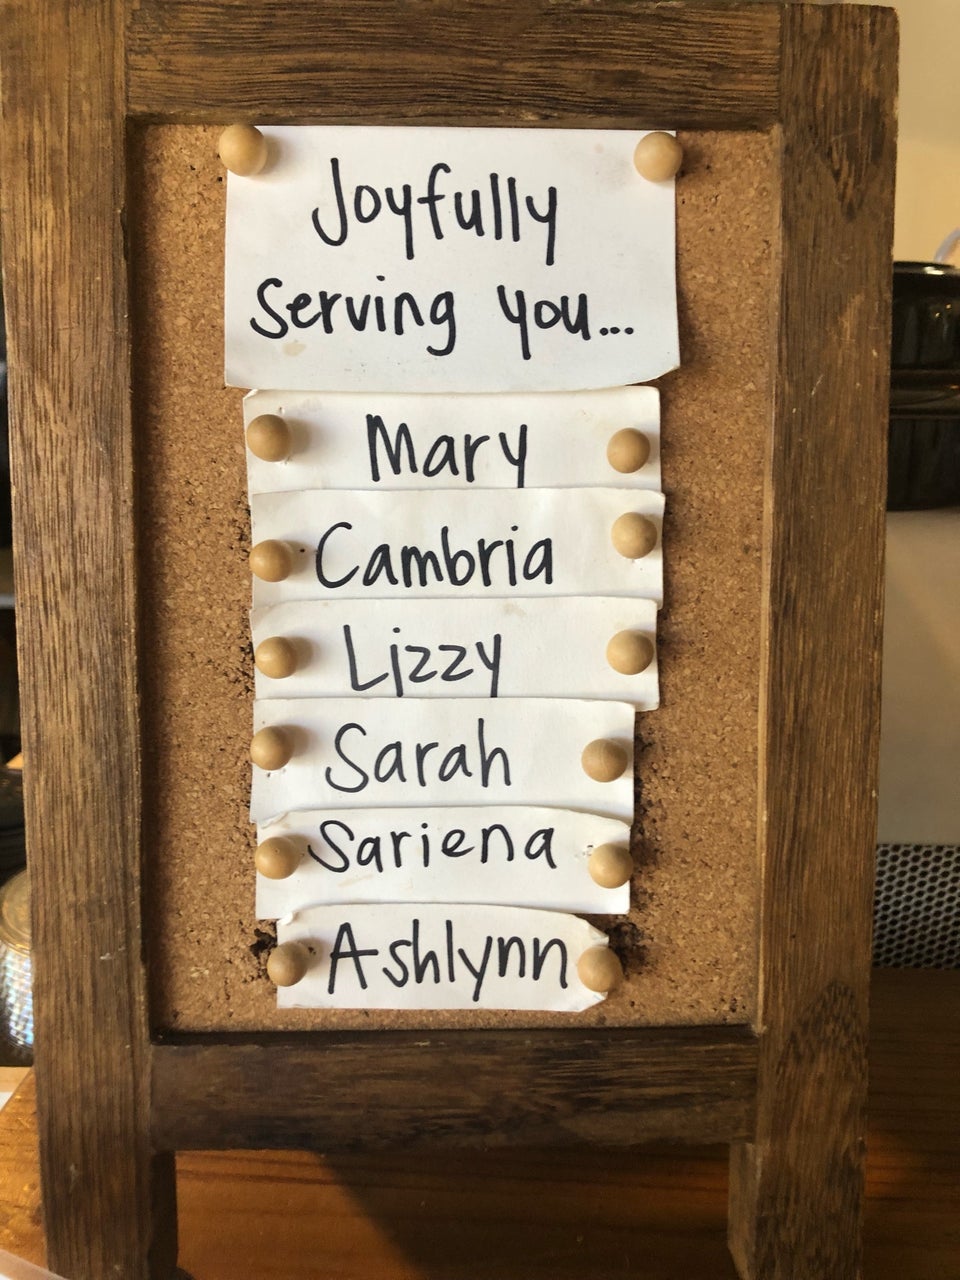 Joyfully
serving you...
Mary
Cambria
Lizzy
Sarah
Sariena
Ashlynn